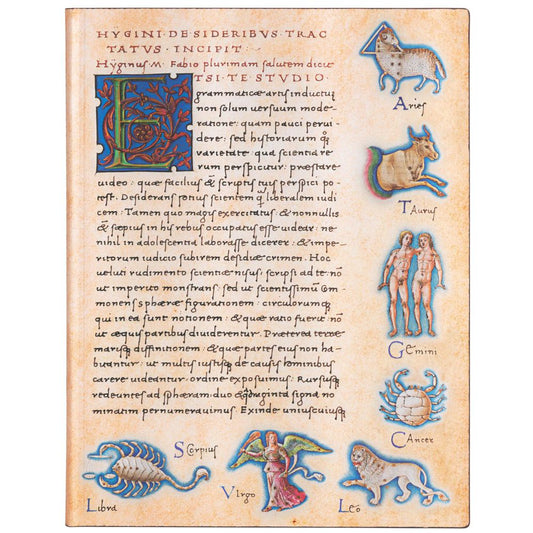 HYGINI·DE·SIDERIBVS·TRAC
TATVS·INCIPIT·
Hÿginus M· Fabio plurimam salutem dicit
ETSI·TE·STVDIO·
grammaticae artis inductuʒ
non solum versuum mode-
ratione: quam pauci pervi-
dere: sed historiarum qꝫ
varietate qua scientia re
rum perspicitur, praestare
uideo: quae facilius & scriptis tuis perspici po-
test. Desiderans potius scientem q̃ liberalem iudi
cem: Tamen quo magis exercitatus: & nonnullis
& saepius in hÿs rebus occupatus esse uidear: ne
nihil in adolescentia laborasse dicerer: & impe-
ritorum iudicio subirem desidiae crimen. Hoc
ueluti rudimento scientiae nisus: scripsi ad te: nõ
ut imperito monstrans, sed ut scientissimũ Com
monens sphaerae figurationem: circulorumqꝫ
qui in ea sunt notionem: & quae ratio fuerit: nõ
ut aequis partibus diuiderentur. Praeterea terrae
marisqꝫ diffinitionem: & quae partes eius non ha-
buantur: ut multis iustisqꝫ de causis hominibus
carere uideantur: ordine exposuimus. Rursusqꝫ
redeuntes ad sphaeram: duo & quadraginta signa no
minatim pernumerauimus. Exinde uniuscuiusqꝫ
Aries
Taurus
Gemini
Cancer
Scorpius
Libra
Virgo
Leo